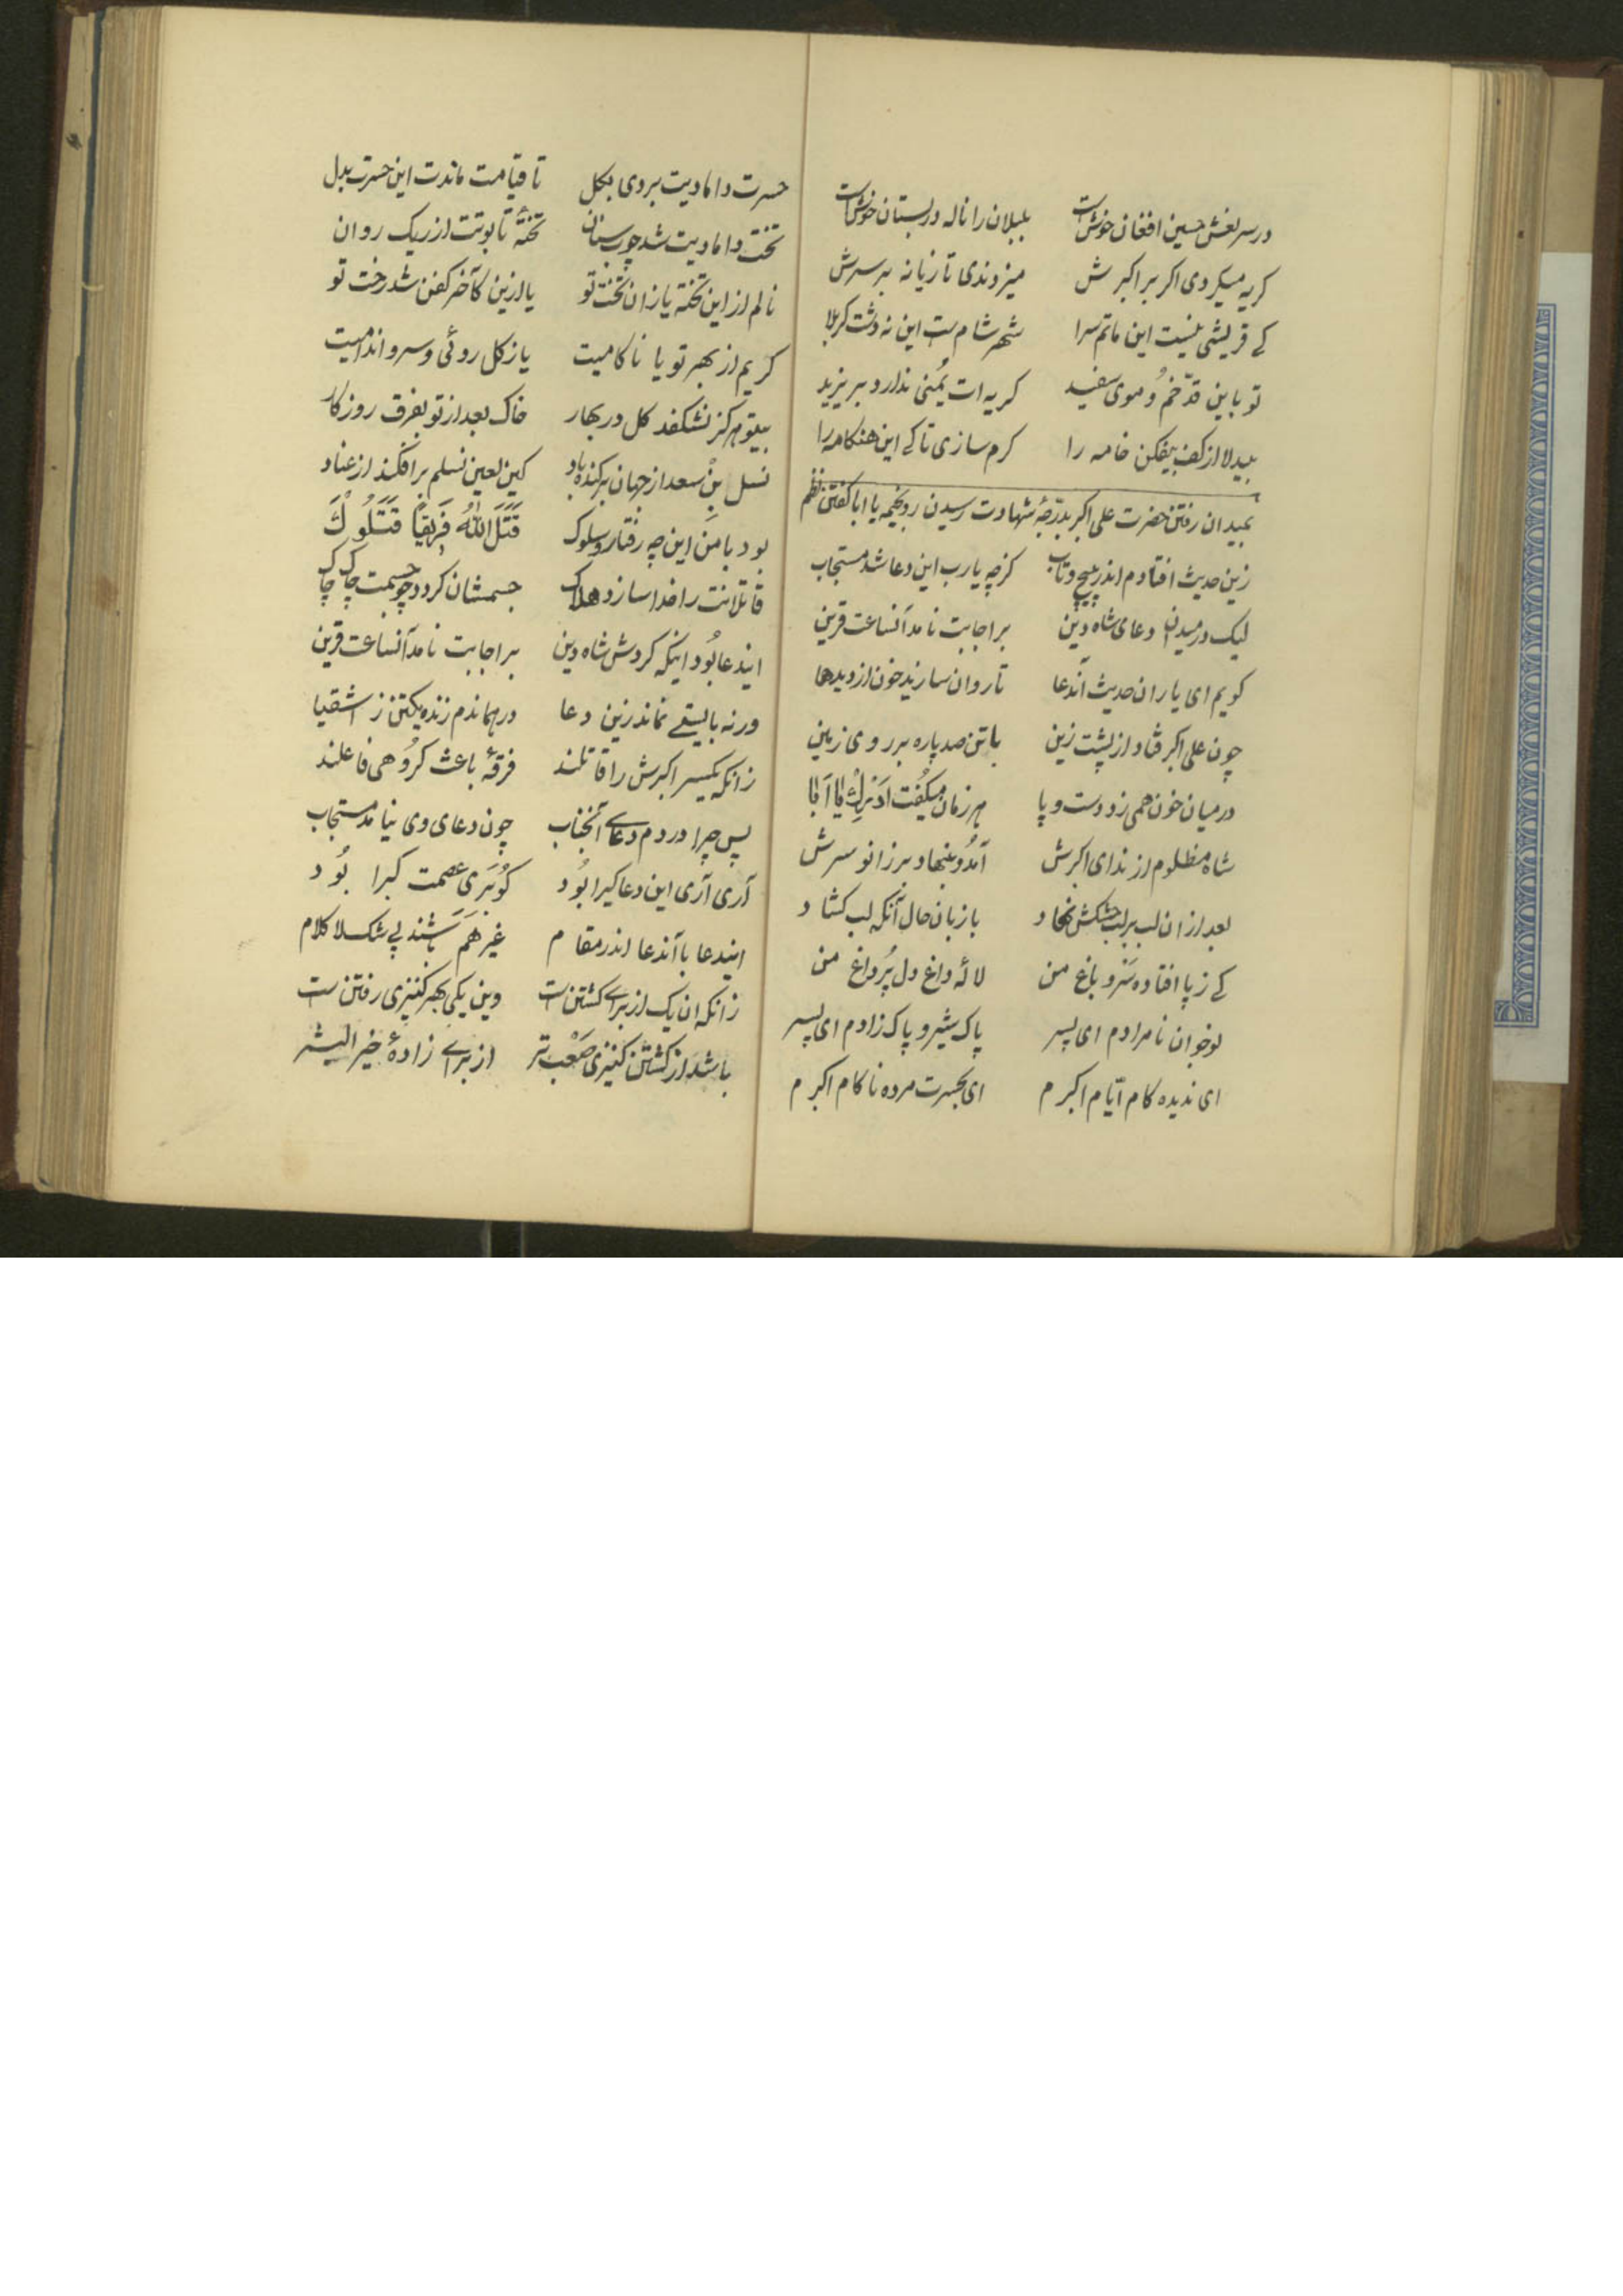 در سر نعش حسین افغان خوش است بلبلان را ناله در بستان خوش است
کریه میکردی اکر بر اکبرش میزدندی تازیانه بر سرش
کے قریشی نیست این ماتم سرا شهر شام ست این نه دشت کربلا
تو باین قدّ خم و موی سفید کریه ات یُمنی ندارد بر یزید
بیدلا از کف بیفکن خامه را کرم سازی تا کے این هنکامه را
بمیدان رفتن حضرت علی اکبر بدرجهٔ شهادت رسیدن رو بخیمه یا ابا کفتن نظم
زین حدیث افتادم اندر پیچ و تاب کزچه یارب این دعا شد مستجاب
لیک در میدان دعای شاه دین بر اجابت نامد آنساعت قرین
کویم ای یاران حدیث آندعا تا روان سازید خون از دیدها
چون علی اکبر فتاد از پشت زین با تن صد پاره بر روی زمین
در میان خون همی زد دست و پا هر زمان میکُفت اَدْرِکْ یا اَبا
شاه مظلوم از ندای اکبرش آمد و بنهاد بر زانو سرش
بعد از ان لب بر لب خشکش نهاد با زبان حال آنکه لب کشاد
کے ز پا افتاده سَرْو باغ من لالهٔ داغ دل پُرداغ من
نوجوان نامرادم ای پسر پاک شیر و پاک زادم ای پسر
ای ندیده کام ایّام اکبرم ای بحسرت مرده ناکام اکبرم
حسرت دامادیت بردی بکل تا قیامت ماندت این حسرت بدل
تخت دامادیت شد چوب سنان تختهٔ تابوتت از ریک روان
نالم از این تخته یا زان تخت تو یا ازین کآخر کفن شد رخت تو
کریم از بهر تو یا ناکامیت یا ز کل روئی و سرو اندامیت
بیتو هرکز نشکفد کل در بهار خاک بعد از تو بفرق روزکار
نسل بن سعد از جهان برکنده باد کین لعین نسلم برافکند از عناد
بود با من این چه رفتار و سلوک قَتَلَ اللّٰهُ فَرِیقًا قَتَلُوكَ
قاتلانت را خدا سازد هلاک جسمشان کردد چو جسمت چاک چاک
ایندعا بُود اینکه کردش شاه دین بر اجابت نامد آنساعت قرین
ورنه بایستے نماند زین دعا در جهاندم زنده یکتن ز اشقیا
زانکه یکسر اکبرش را قاتلند فرقهٔ باعث کرُوهی فاعلند
پس چرا در دم دعاے آنجناب چون دعای وی نیامد مستجاب
آری آری این دعا کیرا بُود کوُ بَری عصمت کبرا بُود
ایندعا با آندعا اندر مقام غیر هَم باشند بے شک لا کلام
زانکه ان یک از براے کشتن است وین یکی بهر کنیزی رفتن ست
باشد از کشتن کنیزی صَعْب تر از براے زادهٔ خیر البشر